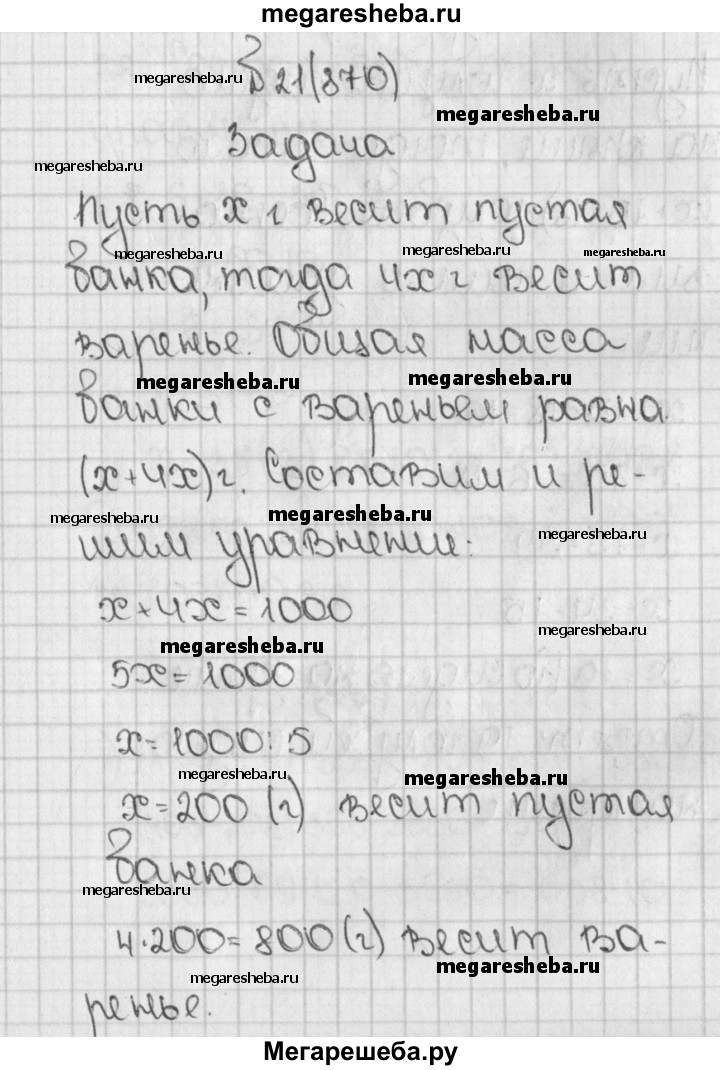 megaresheba.ru
В 21(870)
megaresheba.ru
megaresheba.ru
Задача
megaresheba.ru
Пусть x г весит пустая
megaresheba.ru
megaresheba.ru
megaresheba.ru
банка, тогда 4x г весит
варенье. Общая масса
megaresheba.ru
megaresheba.ru
банки с вареньем равна
(x+4x)г. Составим и ре-
megaresheba.ru
megaresheba.ru
megaresheba.ru
шим уравнение:
x+4x=1000
megaresheba.ru
megaresheba.ru
5x=1000
x=1000:5
megaresheba.ru
megaresheba.ru
x=200 (г) весит пустая
банка
megaresheba.ru
4·200=800(г) весит ва-
megaresheba.ru
megaresheba.ru
ренье.
Мегарешеба.ру